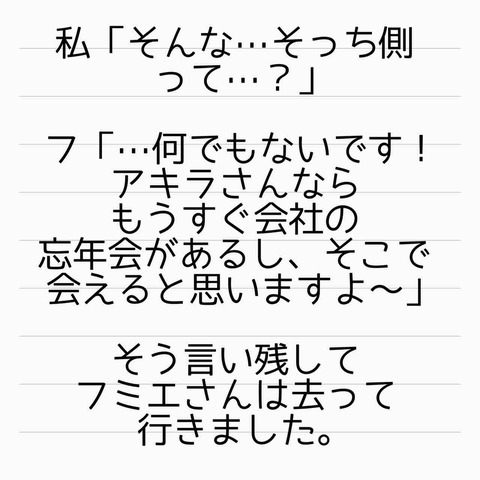 私「そんな…そっち側
って…？」
フ「…何でもないです！
アキラさんなら
もうすぐ会社の
忘年会があるし、そこで
会えると思いますよ〜」
そう言い残して
フミエさんは去って
行きました。